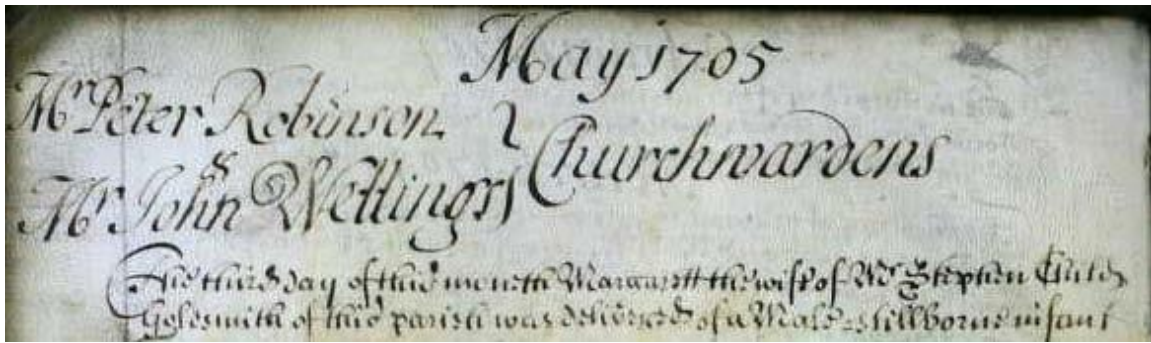 May 1705
Mr Peter Robinson
&
Mr John Wettings
Churchwardens
The third day of this moneth Margarett the wife of Mr Stephen Child
Goldsmith of this parish was delivered of a Male stillborne infant